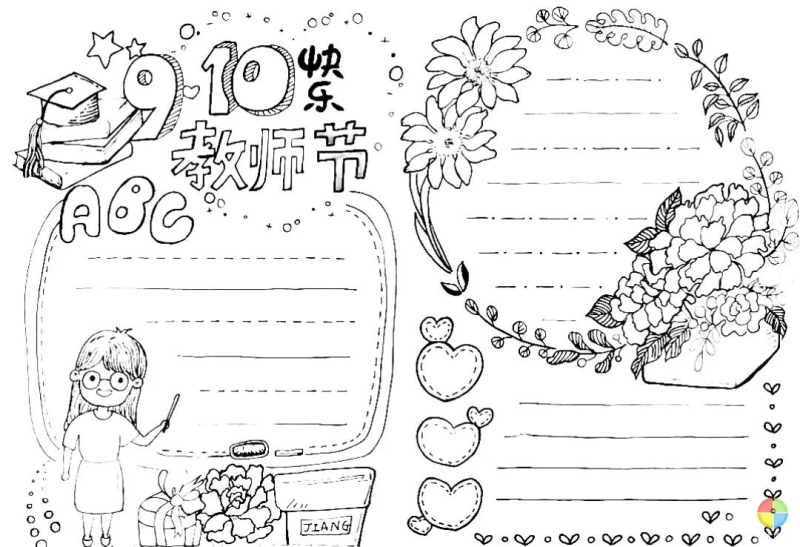 9·10快乐
教师节
ABC
JIANG